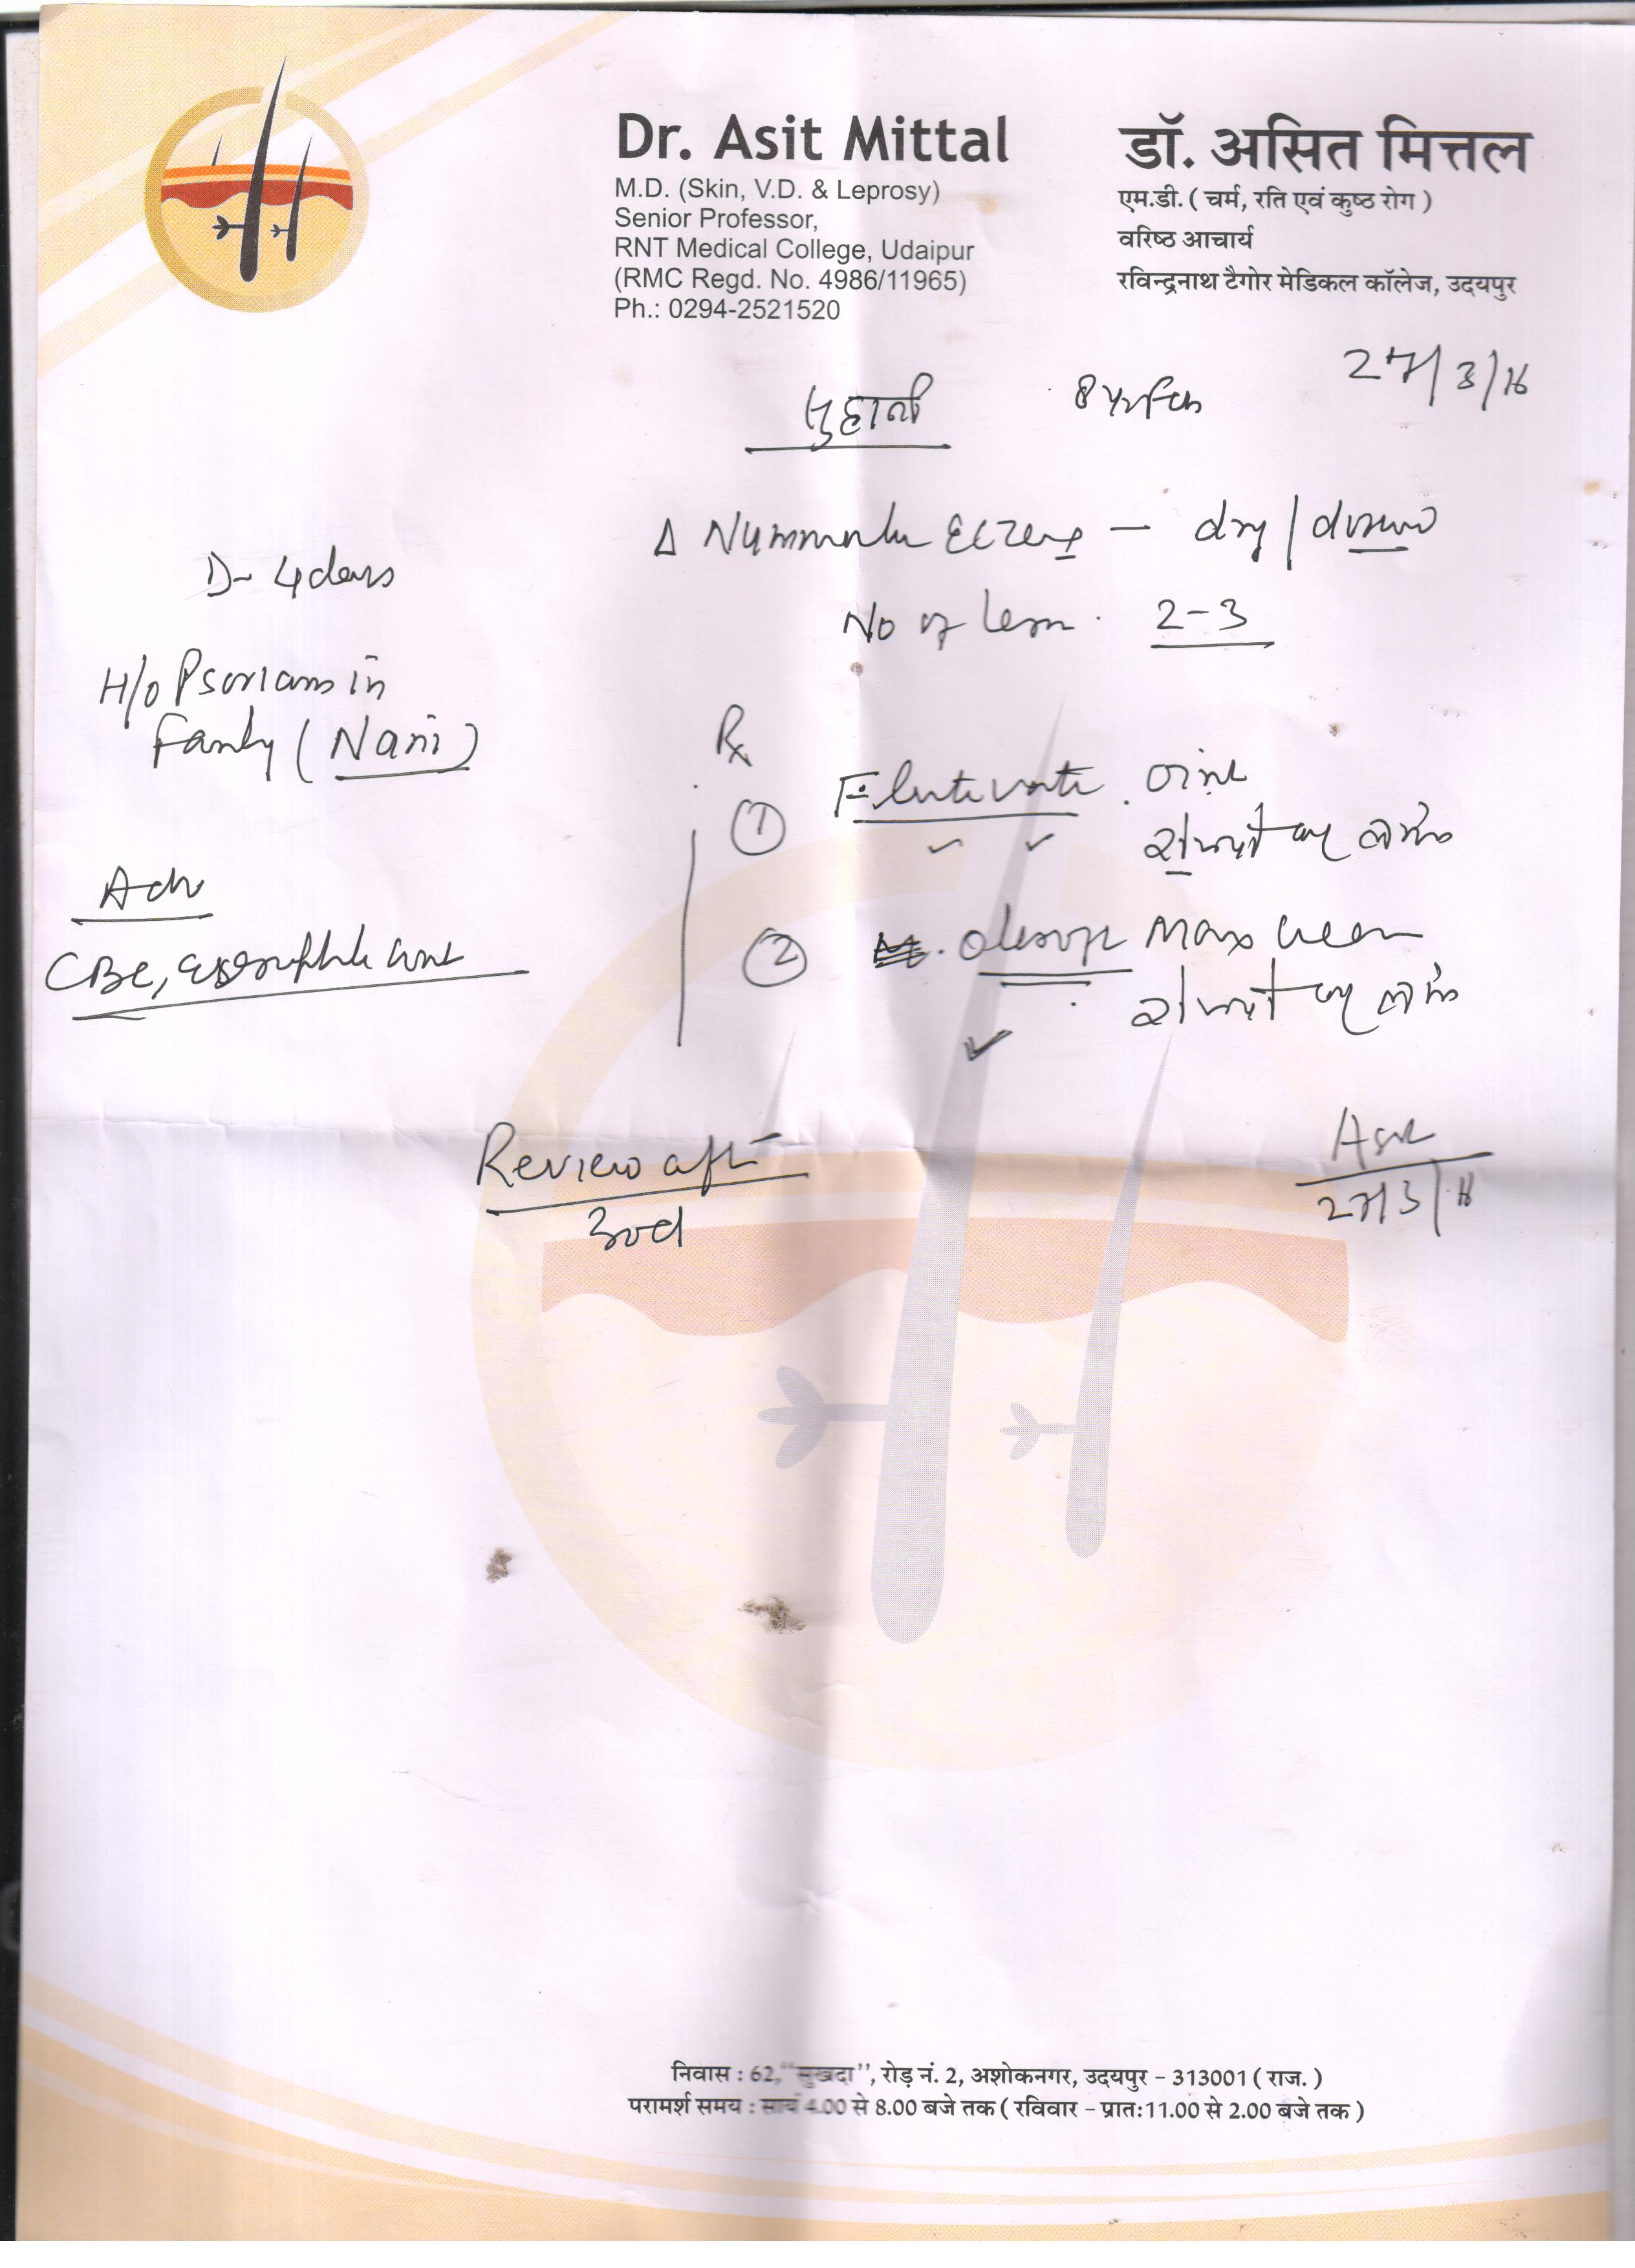 Dr. Asit Mittal
M.D. (Skin, V.D. & Leprosy)
Senior Professor,
RNT Medical College, Udaipur
(RMC Regd. No. 4986/11965)
Ph.: 0294-2521520
डॉ. असित मित्तल
एम.डी. ( चर्म, रति एवं कुष्ठ रोग )
वरिष्ठ आचार्य
रविन्द्रनाथ टैगोर मेडिकल कॉलेज, उदयपुर
27/3/16
सुहानी
Δ Nummular Eczema — dry /
D- 4 days
No of lesion. 2-3
H/o Psoriasis in
Family (Nani)
Rx
① Flutivate oint
Adv
CBC,
② Max cream
Review after
30d
27/3/16
निवास : 62, "सुखदा", रोड़ नं. 2, अशोकनगर, उदयपुर - 313001 ( राज. )
परामर्श समय : सायं 4.00 से 8.00 बजे तक ( रविवार - प्रातः11.00 से 2.00 बजे तक )